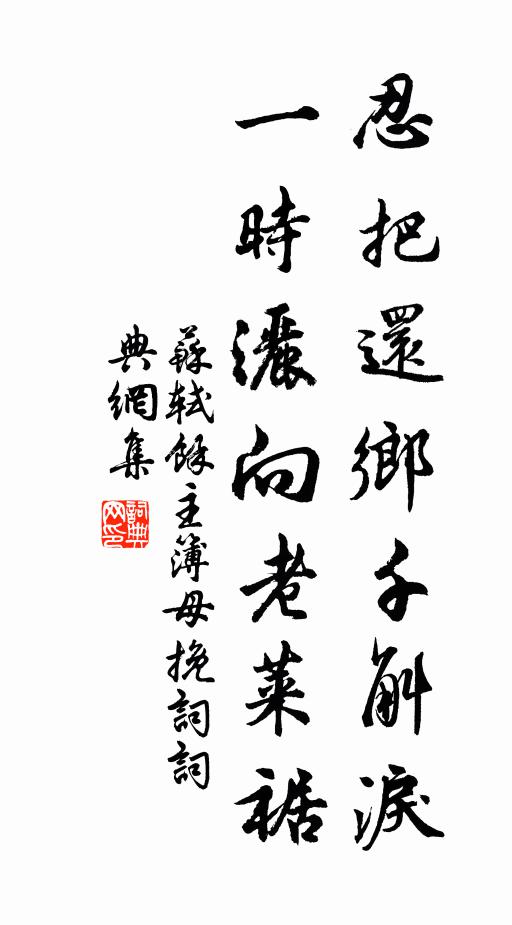 忍把還鄉千斛淚
一時灑向老萊裾
蘇軾餘主簿母挽詞詞
典網集
詞典
网印